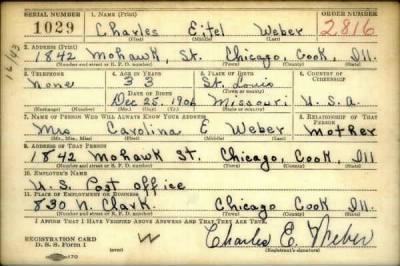 SERIAL NUMBER 1. NAME (Print) ORDER NUMBER
1029 Charles Eitel Weber 2816
(First) (Middle) (Last)
2. ADDRESS (Print)
1842 Mohawk, St. Chicago, Cook, Ill.
(Number and street or R. F. D. number) (Town) (County) (State)
3. TELEPHONE 4. AGE IN YEARS 5. PLACE OF BIRTH 6. COUNTRY OF CITIZENSHIP
none 33 St. Louis
DATE OF BIRTH
Dec 25, 1906 Missouri U.S.A.
7. NAME OF PERSON WHO WILL ALWAYS KNOW YOUR ADDRESS 8. RELATIONSHIP OF THAT PERSON
Mrs Carolina E Weber mother
(Mr., Mrs., Miss) (First) (Middle) (Last)
9. ADDRESS OF THAT PERSON
1842 Mohawk St. Chicago, Cook, Ill
(Number and street or R. F. D. number) (Town) (County) (State)
10. EMPLOYER'S NAME
U.S. Post office
11. PLACE OF EMPLOYMENT OR BUSINESS
830 N. Clark. Chicago Cook, Ill
(Number and street or R. F. D. number) (Town) (County) (State)
I AFFIRM THAT I HAVE VERIFIED ABOVE ANSWERS AND THAT THEY ARE TRUE.
REGISTRATION CARD W Charles E. Weber
D. S. S. Form 1 (over) (Registrant's signature)